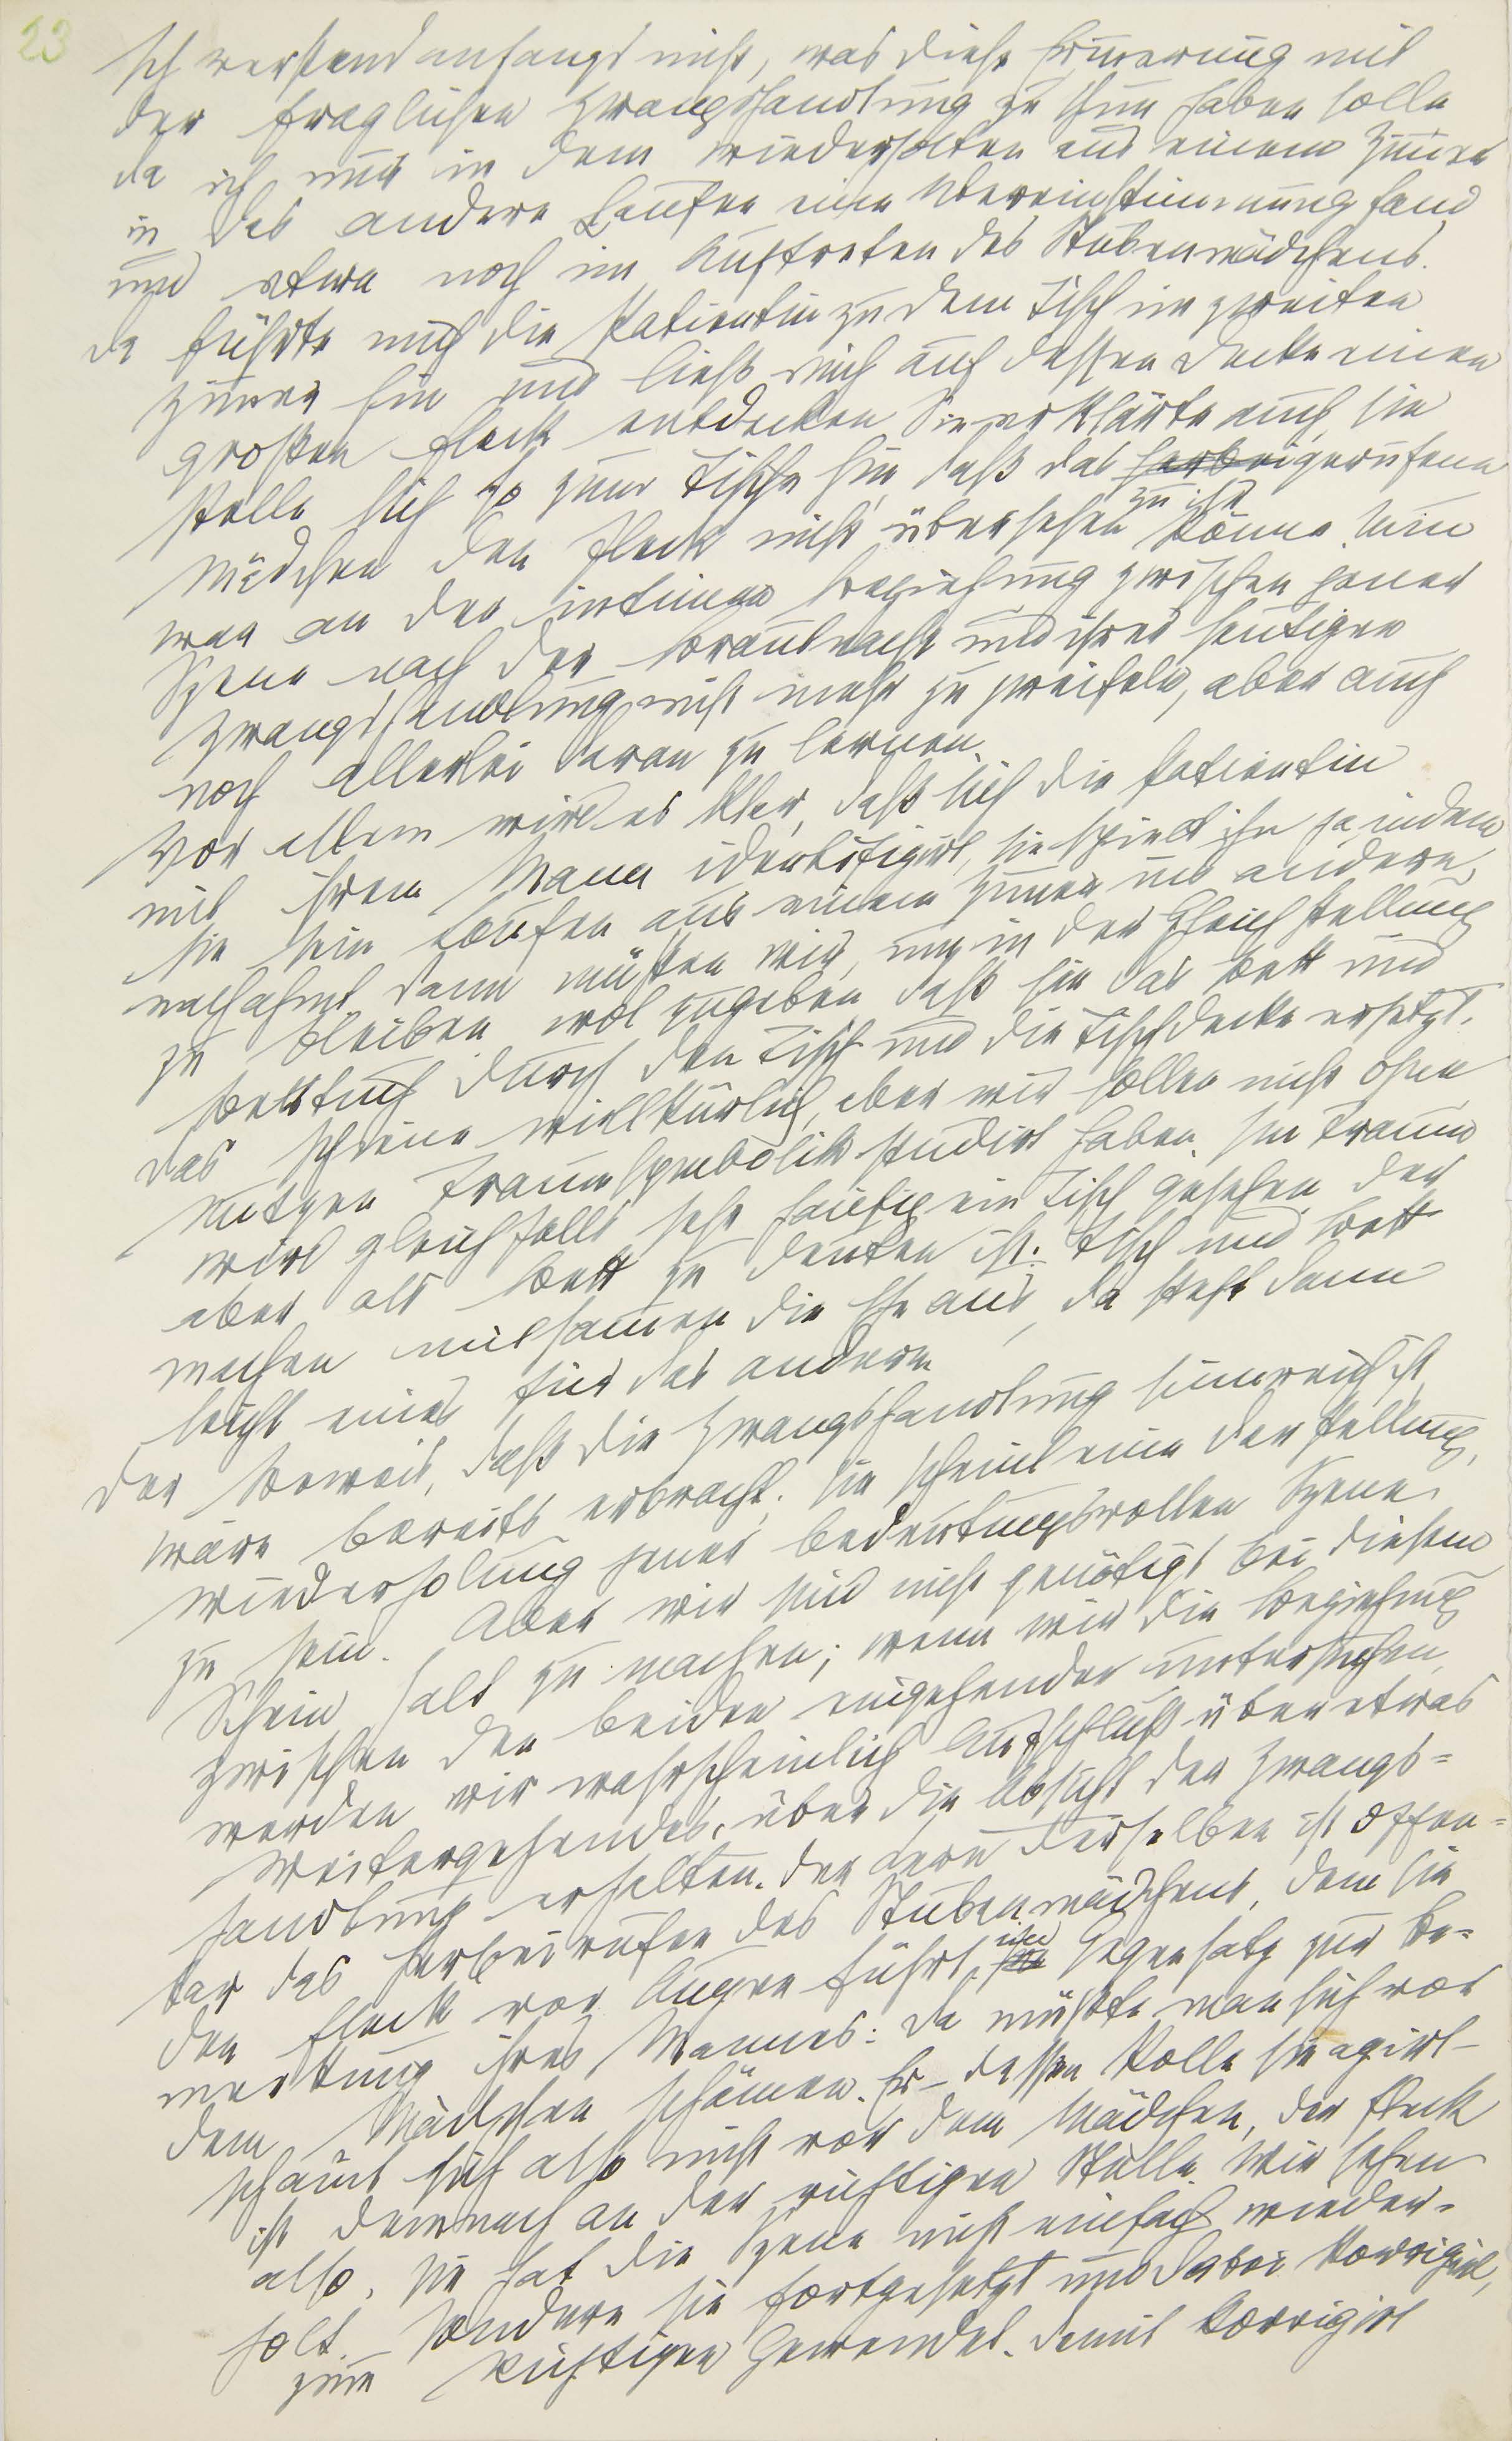 23
Ich verstand anfangs nicht, was diese Erinnerung mit
der fraglichen Zwangshandlung zu thun haben solle
da ich nur in dem wiederholten aus einem Zimmer
in das andere Laufen eine Übereinstimmung fand
und etwa noch im Auftreten des Stubenmädchens.
da führte mich die Patientin zu dem Tisch im zweiten
Zimmer hin und ließ mich auf dessen Decke einen
großen Fleck entdecken Sie erklärte auch, sie
stelle sich so zum Tische hin, daß das herbeigerufene
zu ihr
Mädchen den Fleck nicht übersehen könne. Nun
war an der intimen Beziehung zwischen jener
Szene nach der Brautnacht und ihrer heutigen
Zwangshandlung nicht mehr zu zweifeln, aber auch
noch allerlei daran zu lernen.
Vor allem wird es klar, daß sich die Patientin
mit ihrem Mann identifizirt, sie spielt ihn ja indem
sie sein Laufen aus einem Zimmer ins andere
nachahmt. dann müßen wir, um in der Gleichstellung
zu bleiben wol zugeben, daß sie das Bett und
Bettuch durch den Tisch und die Tischdecke ersetzt.
das schiene willkürlich, aber wir sollen nicht ohne
Nutzen Traumsymbolik studirt haben. Im Traum
wird gleichfalls sehr häufig ein Tisch gesehen, der
aber als Bett zu deuten ist. Tisch und Bett
machen mitsammen die Ehe aus, da steht dann
leicht eines für das andere
der Beweis, daß die Zwangshandlung sinnreich ist,
wäre bereits erbracht; sie scheint eine Darstellung,
Wiederholung jener bedeutungsvollen Szene
zu sein. Aber wir sind nicht genötigt, bei diesem
Schein halt zu machen; wenn wir die Beziehung
zwischen den beiden eingehender untersuchen
werden wir wahrscheinlich Aufschluß über etwas
Weitergehendes, über die Absicht der Zwangs=
handlung erhalten. der Kern derselben ist offen=
bar das Herbeirufen des Stubenmädchens, dem sie
den Fleck vor Augen führt, im Gegensatz zur Be=
merkung ihres Mannes: da müßte man sich vor
dem Mädchen schämen. Er – dessen Rolle sie agirt –
schämt sich also nicht vor dem Mädchen, der Fleck
ist demnach an der richtigen Stelle. Wir sehen
also, sie hat die Szene nicht einfach wieder=
holt, sondern sie fortgesetzt und dabei korrigirt,
zum Richtigen gewendet. damit korrigirt